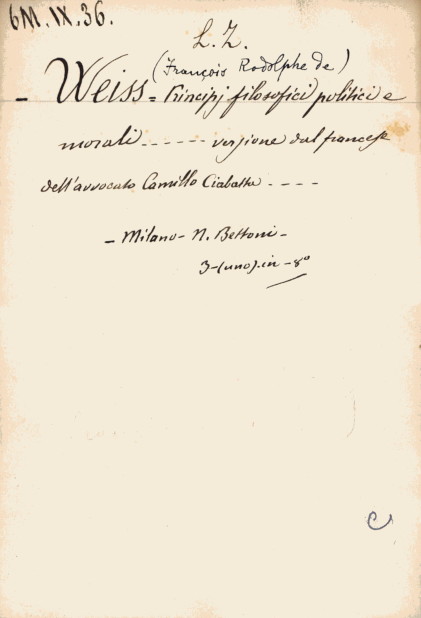 6M.IX.36.
L. Z.
(François Rodolphe de)
- Weiss = Principj filosofici politici e
morali ------ versione dal francese
dell'avvocato Camillo Ciabatta ----
- Milano - N. Bettoni -
3-(uno).in - 8º
C